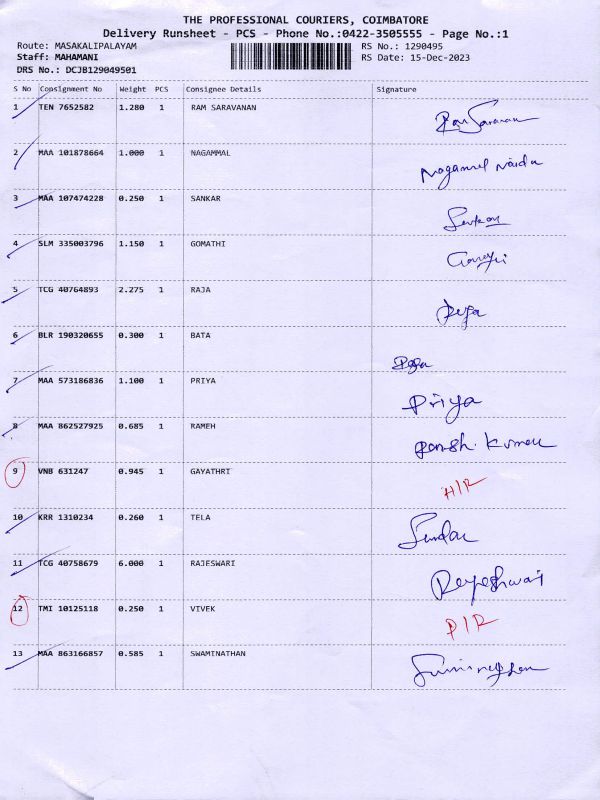 THE PROFESSIONAL COURIERS, COIMBATORE
Delivery Runsheet - PCS - Phone No.:0422-3505555 - Page No.:1
Route: MASAKALIPALAYAM RS No.: 1290495
Staff: MAHAMANI RS Date: 15-Dec-2023
DRS No.: DCJB129049501
S No Consignment No Weight PCS Consignee Details Signature
1 TEN 7652582 1.280 1 RAM SARAVANAN Ram Saravanan
2 MAA 101878664 1.000 1 NAGAMMAL Nagamml Naidu
3 MAA 107474228 0.250 1 SANKAR Sankar
4 SLM 335003796 1.150 1 GOMATHI
5 TCG 40764893 2.275 1 RAJA
6 BLR 190320655 0.300 1 BATA
7 MAA 573186836 1.100 1 PRIYA Priya
8 MAA 862527925 0.685 1 RAMEH Ramsh. Kumar
9 VNB 631247 0.945 1 GAYATHRI H/R
10 KRR 1310234 0.260 1 TELA
11 TCG 40758679 6.000 1 RAJESWARI Rajeshwari
12 TMI 10125118 0.250 1 VIVEK P/R
13 MAA 863166857 0.585 1 SWAMINATHAN